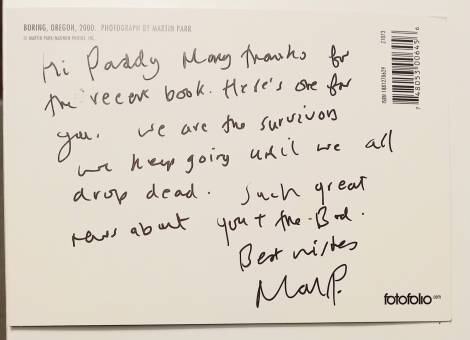 BORING, OREGON, 2000. PHOTOGRAPH BY MARTIN PARR
© MARTIN PARR/MAGNUM PHOTOS, INC.
Hi Paddy Many thanks for
the recent book. Here's one for
you. We are the survivors
we keep going until we all
drop dead. Such great
news about you + the Bod.
Best wishes
MarP.
fotofolio.com
21073
7 48053 00645 6